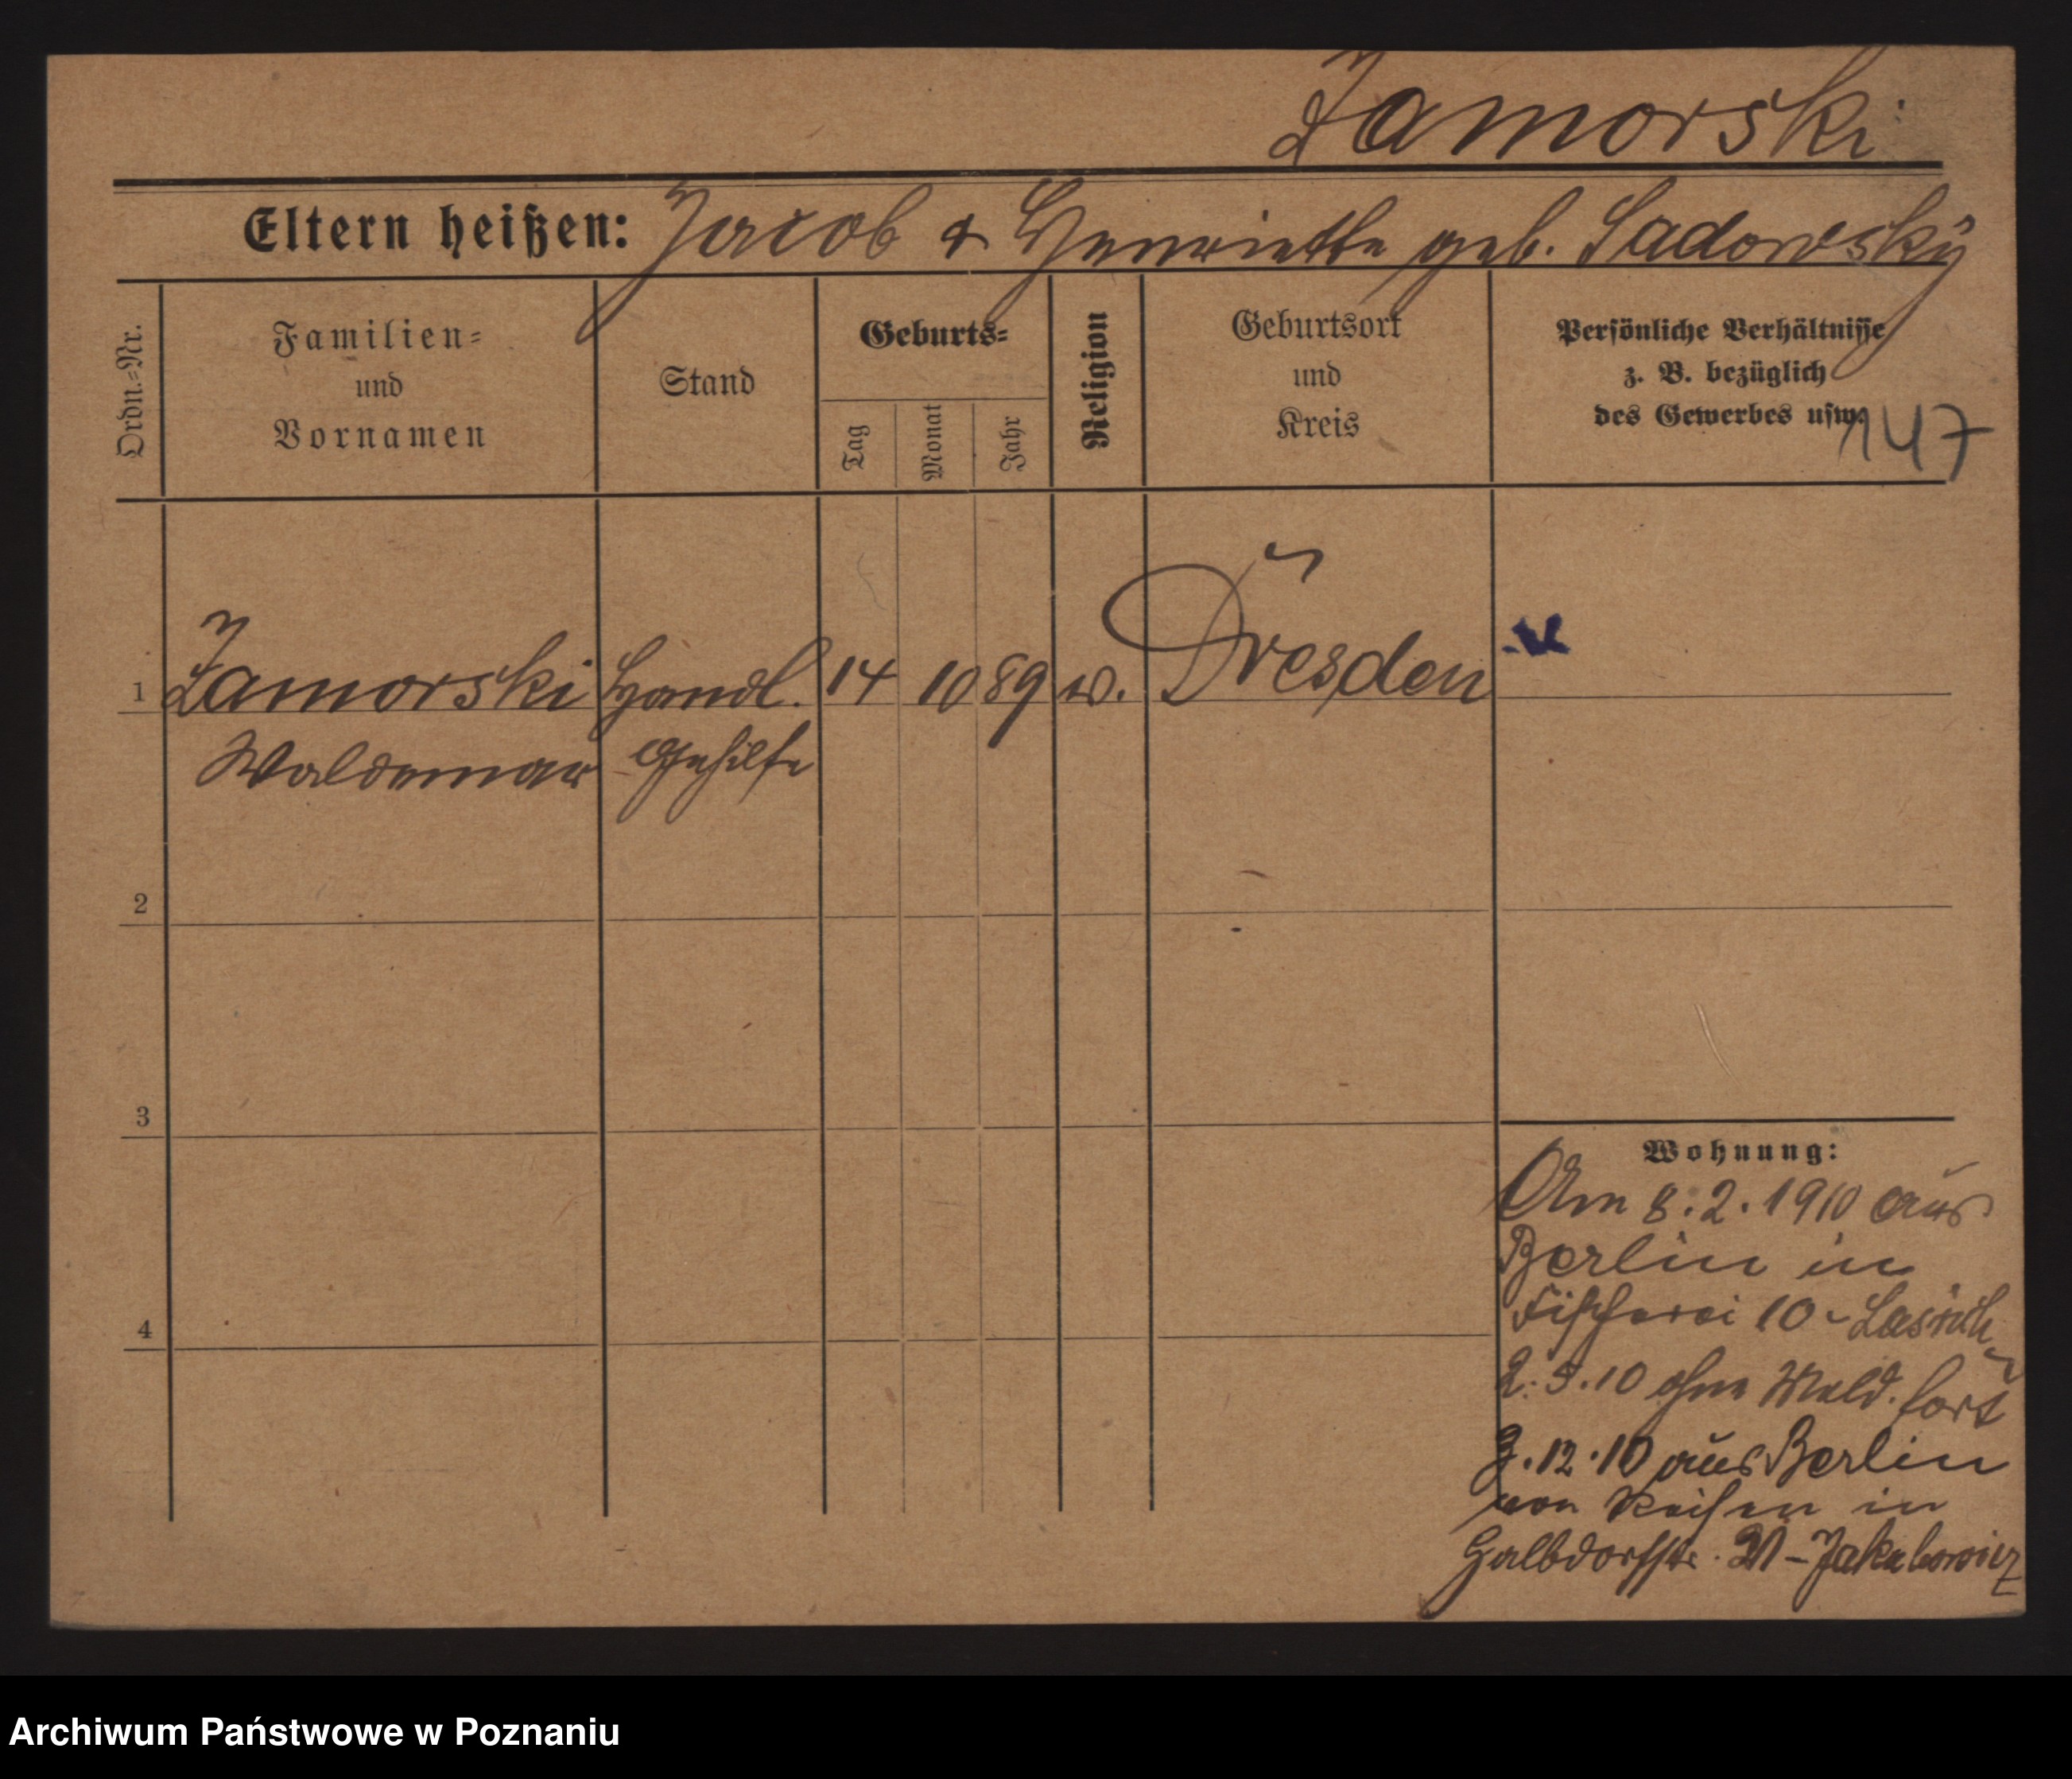 Zamorski
Eltern heißen: Jacob & Henriette geb. Sadowsky
Ordn.=Nr.
Familien=
und
Vornamen
Stand
Geburts=
Tag
Monat
Jahr
Religion
Geburtsort
und
Kreis
Persönliche Verhältnisse
z. B. bezüglich
des Gewerbes usw.
147
1 Zamorski Handl. 14 10 89 Dresden
Waldemar Gehilfe
2
3
4
Wohnung:
Am 8.2.1910 aus
Berlin in
Fischerei 10 -
2.5.10 ohne Meld. fort
3.12.10 aus Berlin
von Reisen in
Halbdorfstr. 31 - Jakubowicz
Archiwum Państwowe w Poznaniu